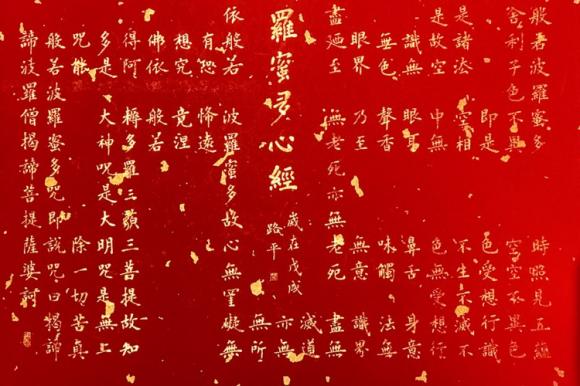 般若波羅蜜多 時照見五蘊
舍利子色不異 空空不異色
即是 色受想行識
是諸法 空相 不生不滅不
是故空 中無 色無受想行
識無 眼耳 鼻舌 身意
無色 聲香 味觸 法無
眼界 乃至 無意 識界
盡廼至 無老死亦無老死 盡無
滅道
亦無
無所
羅蜜多心經
歲在戊戌
路平
依般若 波羅蜜多故心無罣礙無
有恐 怖遠
想究 竟涅
佛依 般若
得阿 耨多羅三藐三菩提故知
多是 大神咒是大明咒是無上
咒能 除一切苦真
般若波羅蜜多咒即說咒曰揭諦
諦波羅僧揭諦菩提薩婆訶